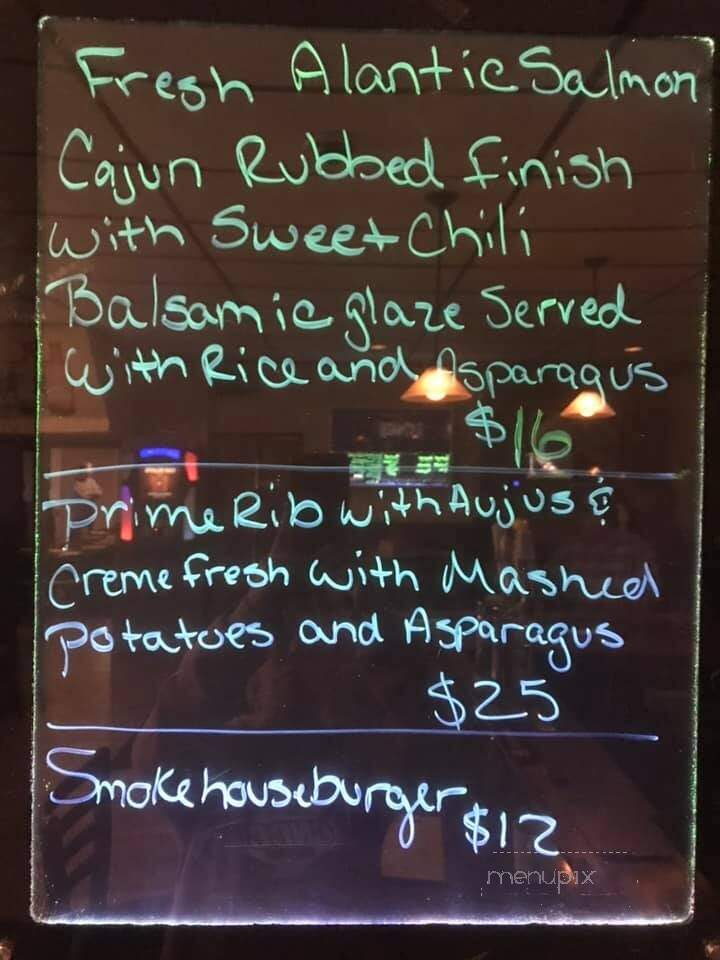 Fresh Alantic Salmon
Cajun Rubbed finish
with Sweet Chili
Balsamic glaze Served
with Rice and Asparagus
$16
Prime Rib with Aujus &
Creme fresh with Mashed
Potatoes and Asparagus
$25
Smokehouseburger $12
menupix